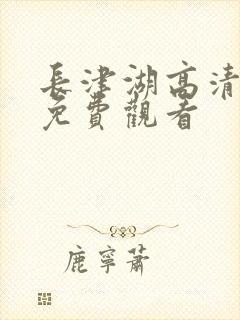 長津湖高清
免費觀看
鹿寧蕭